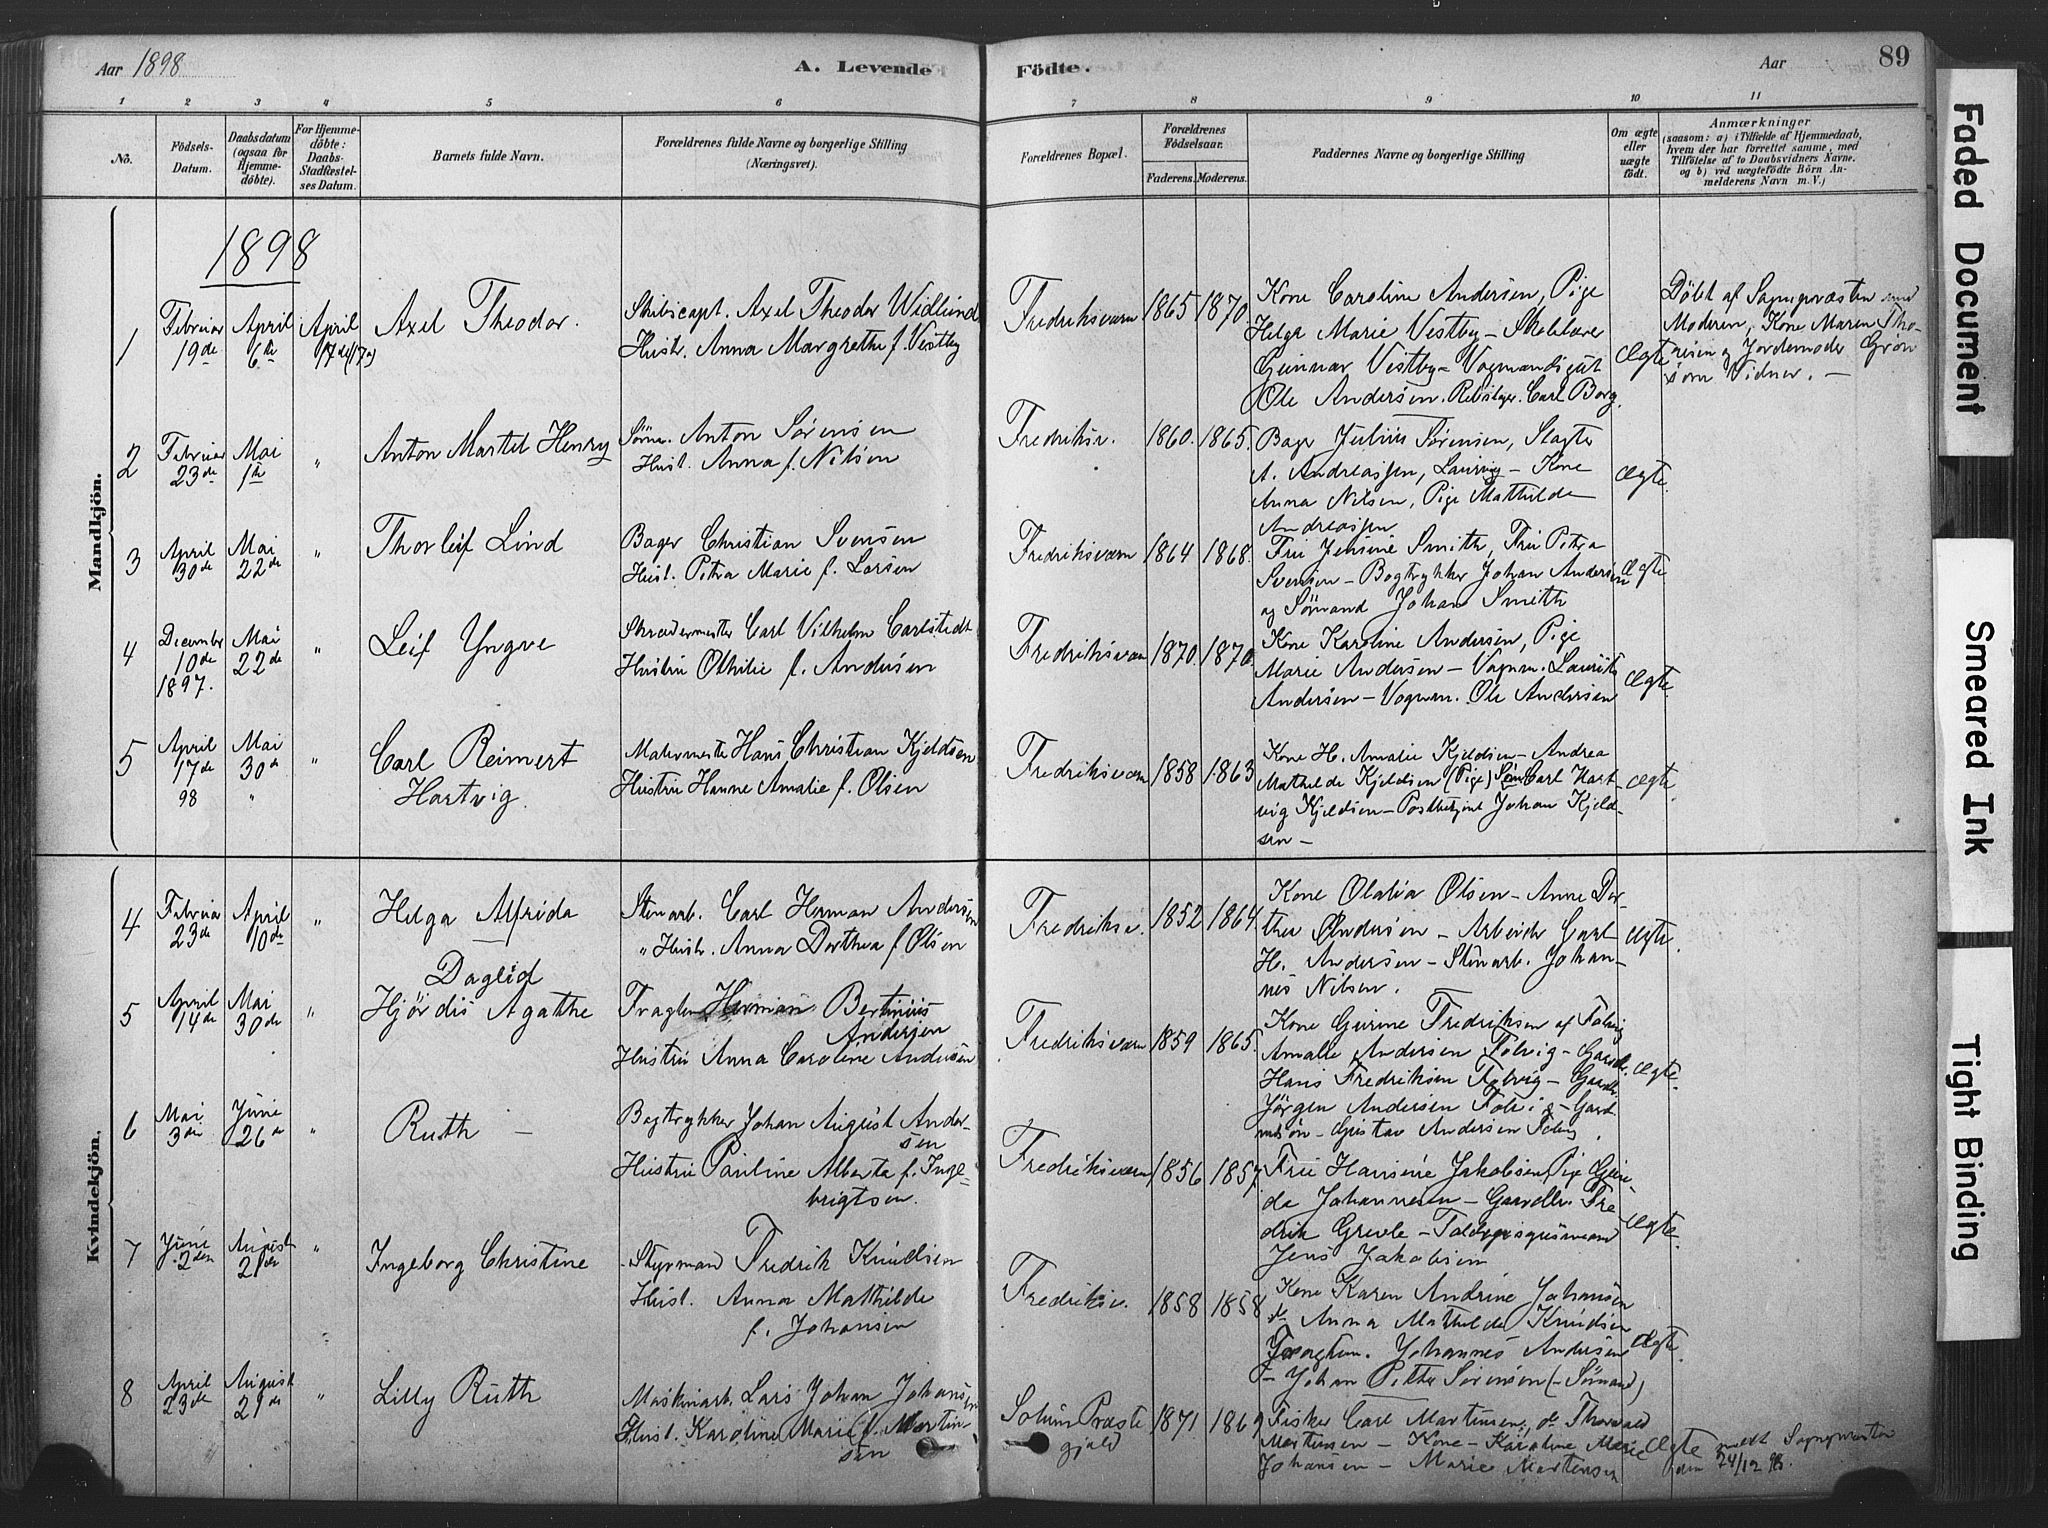 Aar 1898
A. Levende
Födte.
Aar
89
1 2 3 4 5 6 7 8 9 10 11
No.
Födsels-
Datum.
Daabsdatum
(ogsaa for
Hjemme-
døbte).
For Hjemme-
døbte:
Daabs-
Stadfæstel-
ses Datum.
Barnets fulde Navn.
Forældrenes fulde Navne og borgerlige Stilling
(Næringsvei).
Forældrenes Bopæl.
Forældrenes
Födselsaar.
Faderens. Moderens.
Faddernes Navne og borgerlige Stilling
Om ægte
eller
uægte
födt.
Anmærkninger
(saasom: a) i Tilfælde af Hjemmedaab,
hvem der har forrettet samme, med
Tilföielse af to Daabsvidners Navne.
og b) ved uægtefödte Börn An-
melderens Navn m. V.)
Mandkjön.
1898
1
Februar
19de
April
6te
April
17de
Axel Theodor.
Skibscapt. Axel Theodor Widlund
Hustr. Anna Margrethe f. Vestby
Fredriksværn
1865
1870
Kone Caroline Andersen, Pige
Helga Marie Vestby – Skolelærer
Gunnar Vestby – Vogmandsgut
Ole Andersen. Rebslager. Carl Borg.
Ægte
Døbt af Sognepræsten med
Moderen, Kone Maren Tho-
resen og Jordemoder Grøn
som Vidner. –
2
Februar
23de
Mai
1te
"
Anton Martel Henry
Sømd. Anton Sørensen
Hust. Anna f. Nilsen
Fredriksv.
1860.
1865.
Bager Julius Sørensen, Slagter
A. Andreassen, Laurvig – Kone
Anna Nilsen, Pige Mathilde
Andreassen
Ægte.
3
April
30de
Mai
22de
"
Thorleif Lind
Bager Christian Svensen
Hust. Petra Marie f. Larsen
Fredriksværn
1864
1868.
Fru Jensine Smith, Fru Petra
Svensen – Bogtrykker Johan Andersen
og Sømand Johan Smith
Ægte
4
December
10de
1897.
Mai
22de
"
Leif Yngve
Skrædermester Carl Vilhelm Carlstedt
Hustru Othilie f. Andersen
Fredriksværn
1870.
1870.
Kone Karoline Andersen, Pige
Marie Andersen – Vognm. Laurits
Andersen – Vognm. Ole Andersen
Ægte.
5
April
17de
98
Mai
30de
"
"
Carl Reimert
Hartvig.
Malermester Hans Christian Kjeldsen
Hustru Hanne Amalie f. Olsen
Fredriksværn
1858
1863
Kone H. Amalie Kjeldsen – Andrea
Mathilde Kjeldsen (Pige) Carl Hart-
vig Kjeldsen – Postbetjent Johan Kjeld-
sen –
Ægte.
Kvindekjön.
4
Februar
23de
April
10de
"
Helga Alfrida
Stenarb. Carl Herman Andersen
" Hustr. Anna Dorthea f. Olsen
Fredriksv.
1852
1864.
Kone Olava Olsen – Anne Dor-
thea Andersen – Arbeider Carl
H. Andersen – Stenarb. Johan-
nes Nilsen.
Ægte.
5
April
14de
Mai
30de
"
Daglid
Hjørdis Agathe
Fragtem Herman Bertinius
Andersen
Hustru Anna Caroline Andersen
Fredriksværn
1859
1865.
Kone Gurine Fredriksen af Folvig
Amalie Andersen Folvig – Gaardb.
Hans Fredriksen Folvig – Gaardb.
Jørgen Andersen Folvig – Gaard
– Gustav Andersen Folvig.
Ægte.
6
Mai
3die
Juni
26de
"
Ruth –
Bogtrykker Johan August Ander-
sen
Hustru Pauline Alberta f. Inge-
brigtsen.
Fredriksværn
1856
1857
Frue Hansine Jakobsen, Pige
Johannesen – Gaardbr. Fre-
drik Grevle –
Jens Jakobsen
Ægte.
7
Juni
2den
August
21de
"
Ingeborg Christine
Styrmand Fredrik Knudsen
Hust. Anna Mathilde
f. Johansen
Fredriksv.
1858
1858
Kone Karen Andrine Johansen
do Anna Mathilde Knudsen
Fragtem. Johannes Andersen
– Johan Petter Sørensen (– Sømand)
Ægte.
8
April
23de
August
21de
"
Lilly Ruth
Maskinarb. Lars Johan Johansen
Hust. Karoline Marie f. Martin-
sen
Solum Præste-
gjeld
1871
1869
Fisker Carl Martinsen, do Thorvald
Martinsen – Kone – Karoline Marie
Johansen – Marie Martensen
Ægte
meldt Sognepræsten
den 24/12 98.
Faded Document
Smeared Ink
Tight Binding